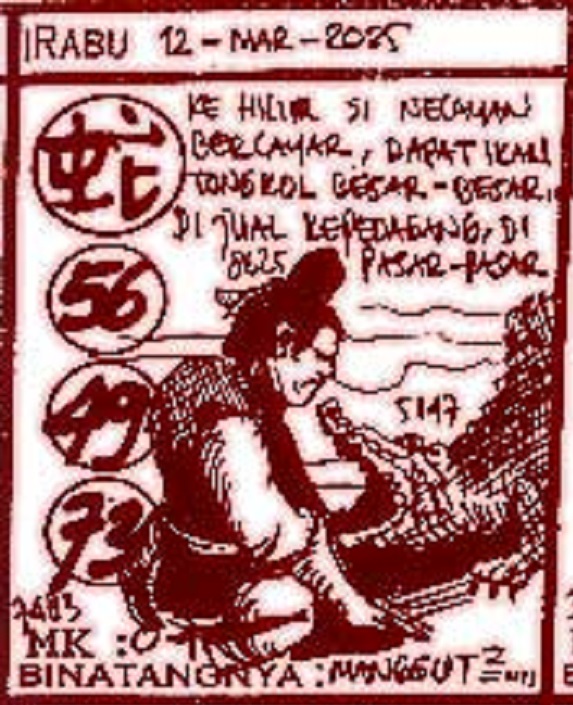 RABU 12-MAR-2025
KE HILIR SI NELAYAN
BERLAYAR, DAPAT IKAN
TONGKOL BESAR-BESAR,
DI JUAL KEPEDAGANG, DI
PASAR-PASAR
蛇
56
49
73
5147
7483
MK :0
BINATANGNYA :MANGGUT